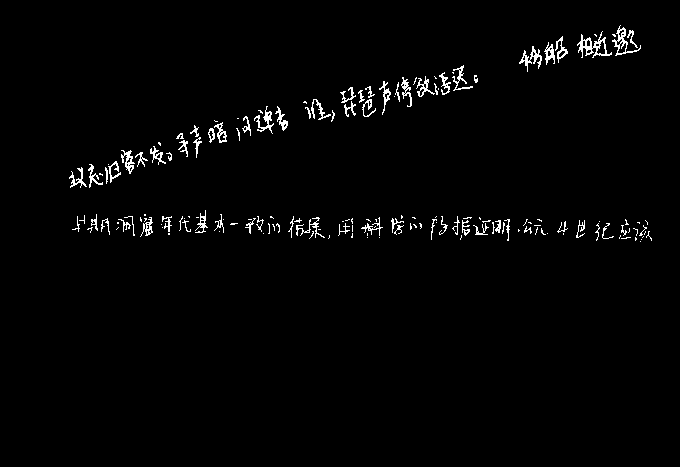 议忘归客不发。寻声暗问弹者谁,琵琶声停欲语迟。 移船相近邀
早期洞窟年代基本一致的结果,用科学的数据证明,公元4世纪应该